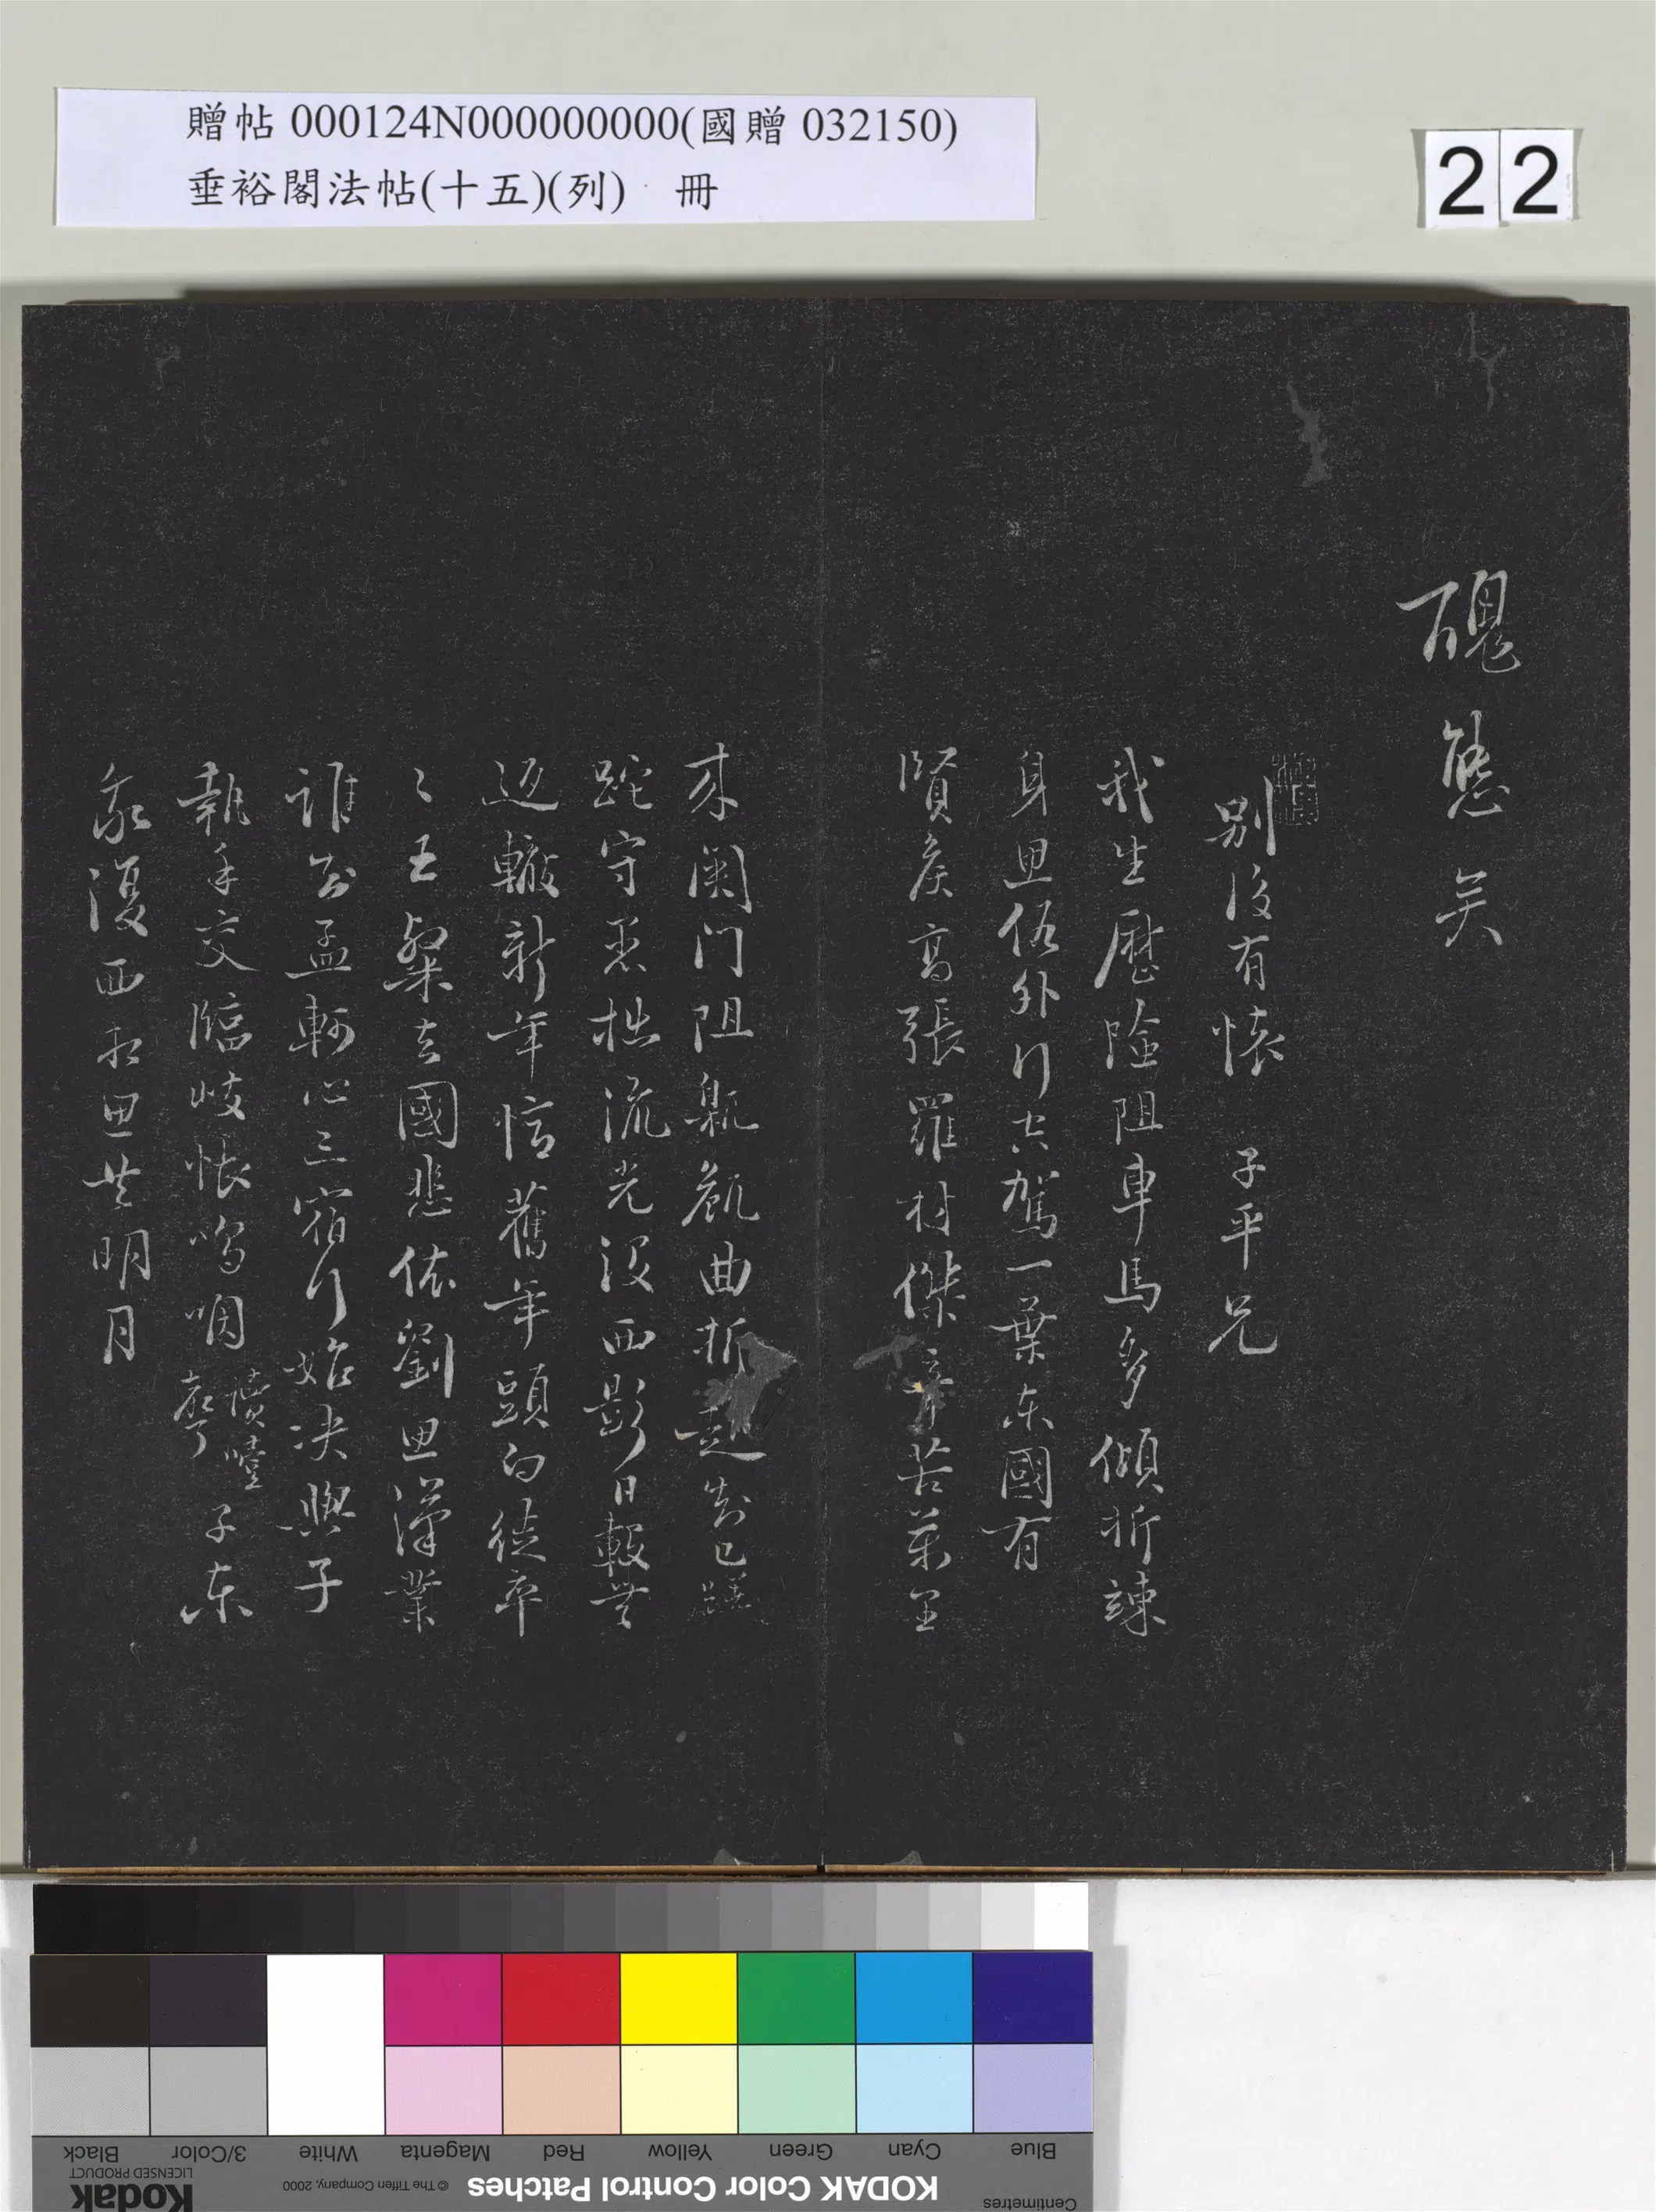 贈帖 000124N000000000(國贈 032150)
垂裕閣法帖(十五)(列) 冊
22
醜態矣
別後有懷 子平兄
我生歷險阻車馬多傾折諫
身思伍外行古駕一葉東國有
賢矦高張羅材傑辛苦萬里
來閡门阻臲卼曲折赴
跎守愚拙流光没西影日轂無
返轍新年悟舊年頭白徒卒
〻王粲去國悲依劉思漢業
誰知孟軻心三宿行始决與子
執手交臨岐悵嗚咽子東
我復西相思共明月
Blue
Cyan
Green
Yellow
Red
Magenta
White
3/Color
Black
KODAK Color Control Patches
© The Tiffen Company, 2000
Kodak
LICENSED PRODUCT
Centimetres